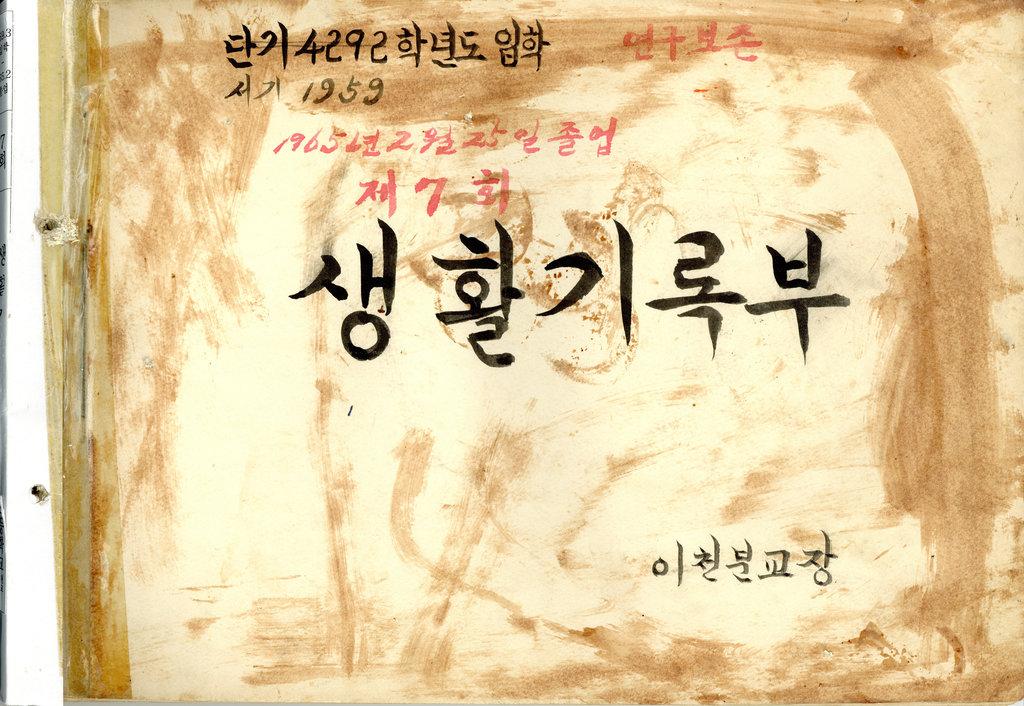 단기4292학년도 입학
연구보존
서기 1959
1965년 2월 25일 졸업
제7회
생활기록부
이천분교장